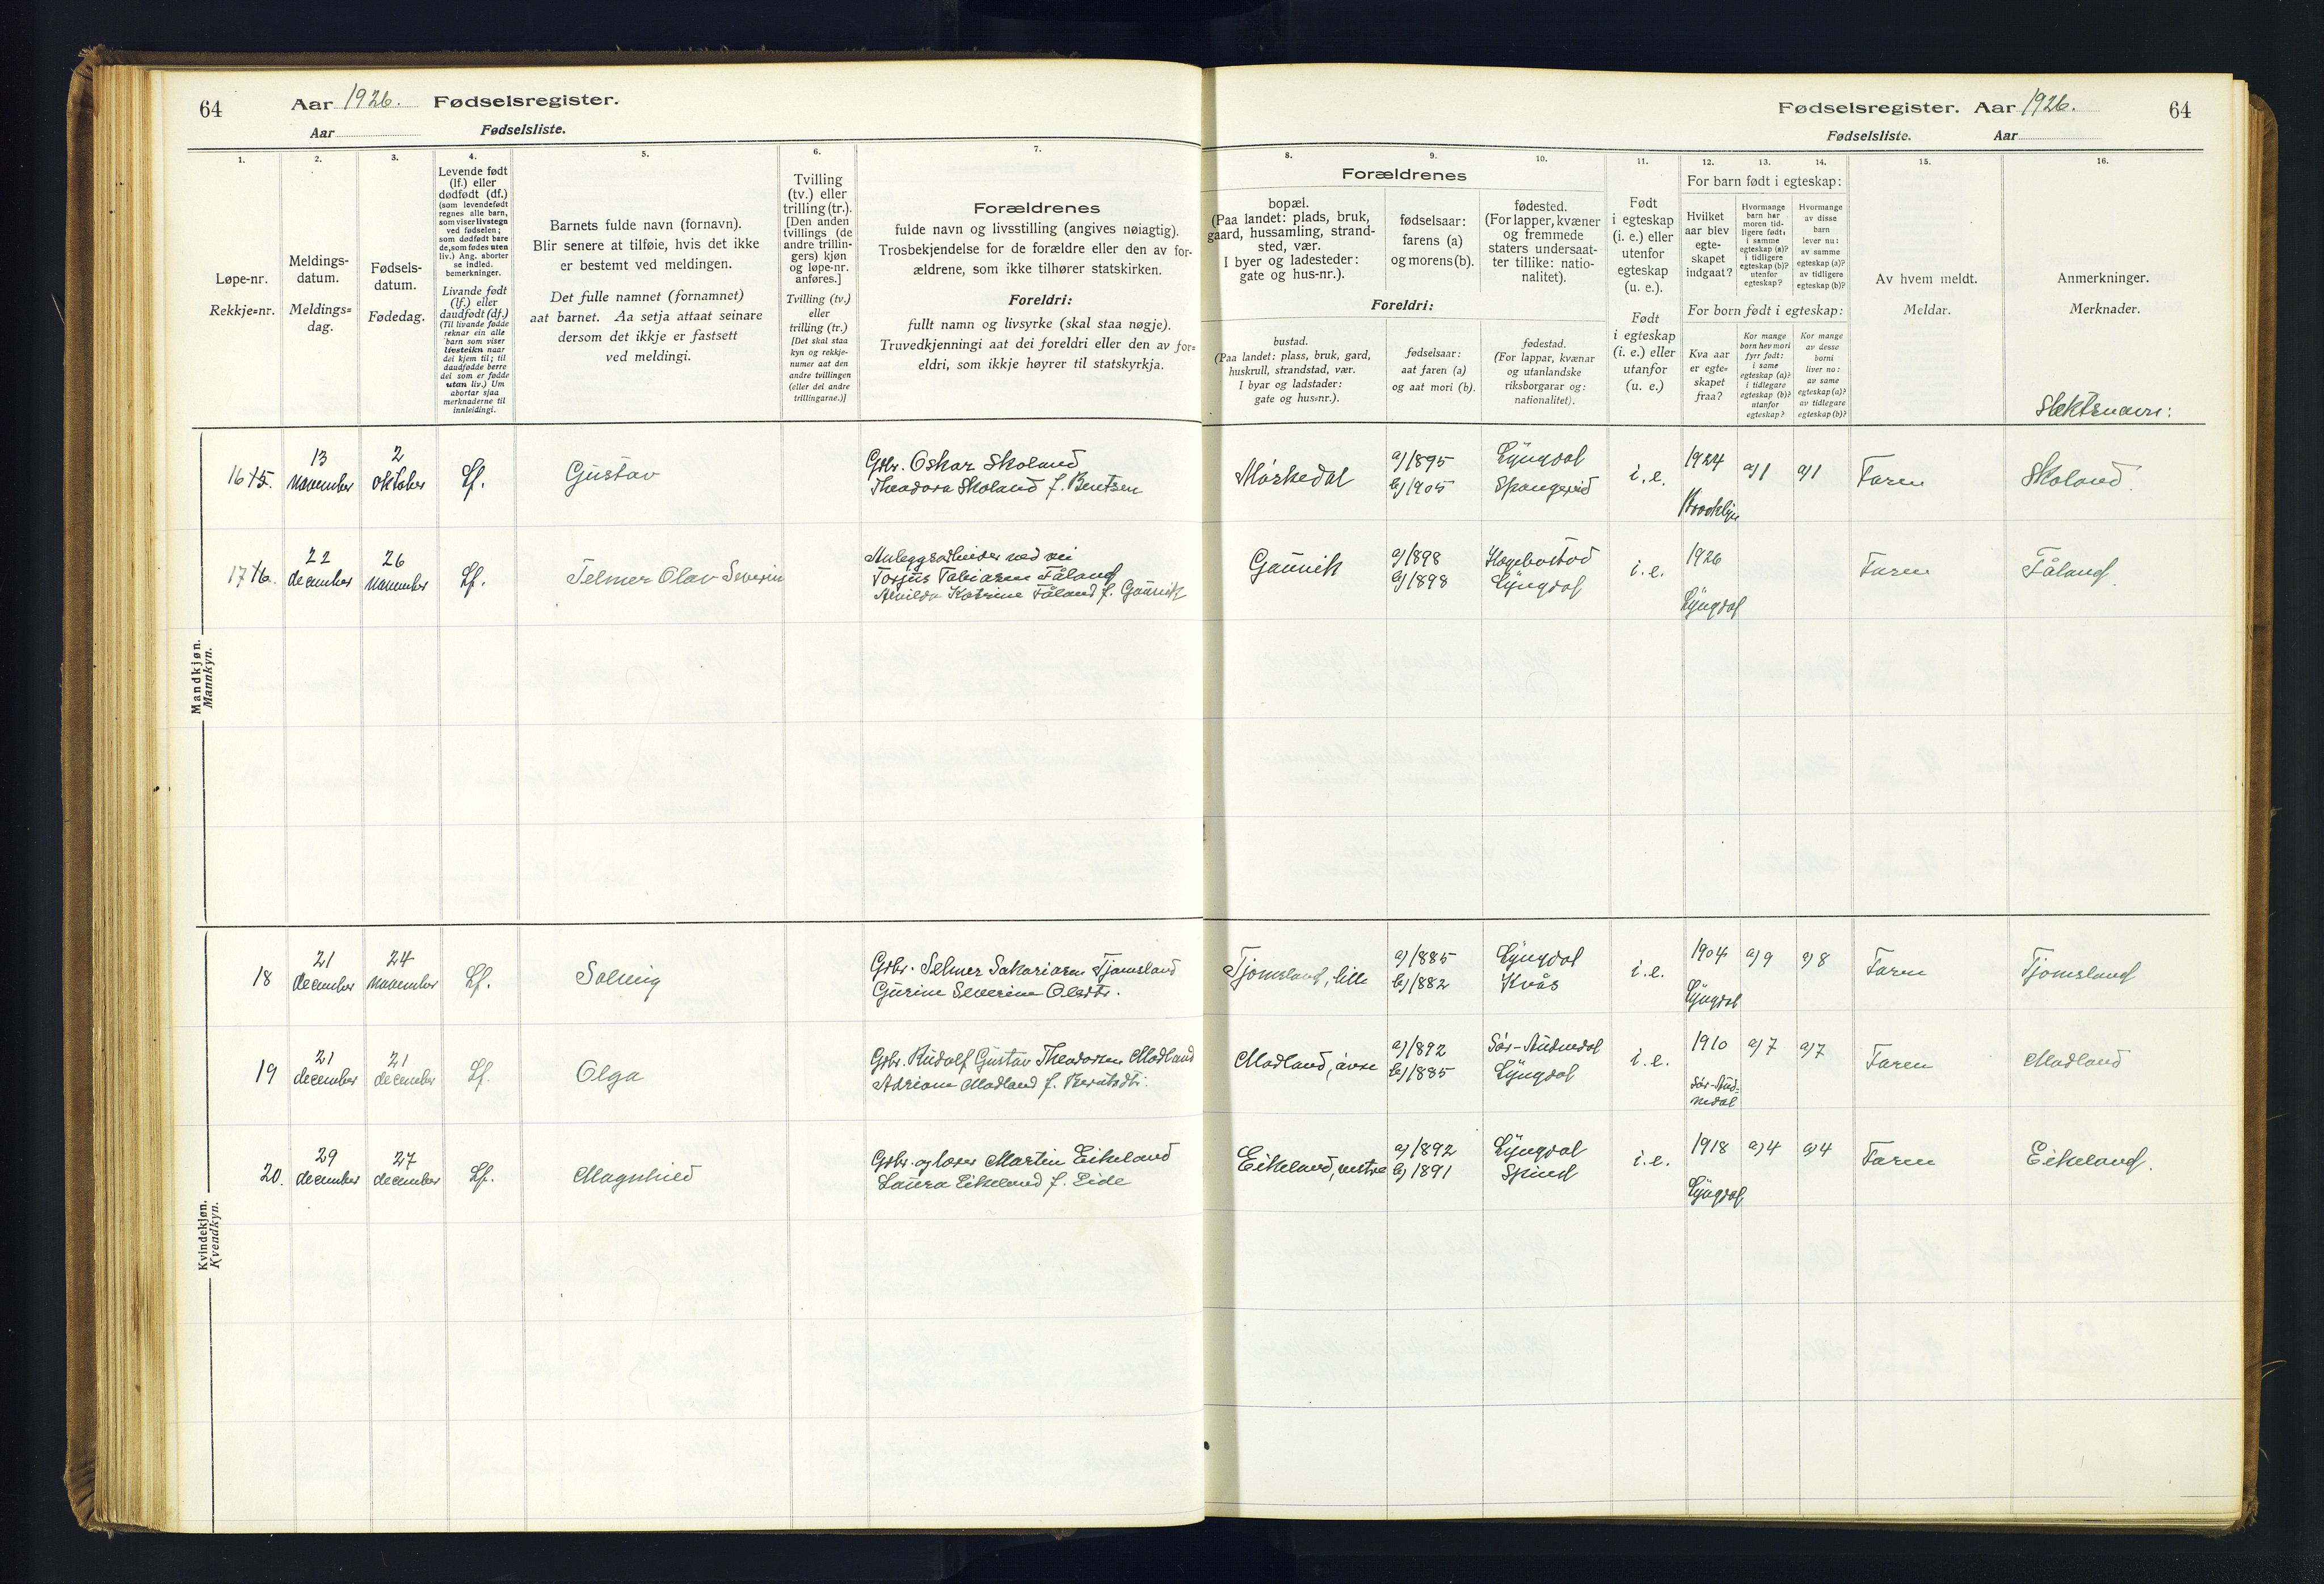 64
Aar 1926. Fødselsregister.
Aar Fødselsliste.
Fødselsregister. Aar 1926.
64
Fødselsliste. Aar
1.
Løpe-nr.
Rekkje=nr.
2.
Meldings-
datum.
Meldings=
dag.
3.
Fødsels-
datum.
Fødedag.
4.
Levende født
(lf.) eller
dødfødt (df.)
(som levendefødt
regnes alle barn,
som viser livstegn
ved fødselen;
som dødfødt bare
de, som fødes uten
liv.) Ang. aborter
se indled.
bemerkninger.
Livande født
(lf.) eller
daudfødt (df.)
(Til livande fødde
reknar ein alle
barn som viser
livsteikn naar
dei kjem til; til
daudfødde berre
dei som er fødde
utan liv.) Um
abortar sjaa
merknaderne til
innleidingi.
5.
Barnets fulde navn (fornavn).
Blir senere at tilføie, hvis det ikke
er bestemt ved meldingen.
Det fulle namnet (fornamnet)
aat barnet. Aa setja attaat seinare
dersom det ikkje er fastsett
ved meldingi.
6.
Tvilling
(tv.) eller
trilling (tr.).
[Den anden
tvillings (de
andre trillin-
gers) kjøn
og løpe-nr.
anføres.]
Tvilling (tv.)
eller
trilling (tr.)
[Det skal staa
kyn og rekkje-
numer aat den
andre tvillingen
(eller dei andre
trillingarne.)]
7.
Forældrenes
fulde navn og livsstilling (angives nøiagtig).
Trosbekjendelse for de forældre eller den av for-
ældrene, som ikke tilhører statskirken.
Foreldri:
fullt namn og livsyrke (skal staa nøgje).
Truvedkjenningi aat dei foreldri eller den av for=
eldri, som ikkje høyrer til statskyrkja.
Forældrenes
8.
bopæl.
(Paa landet: plads, bruk,
gaard, hussamling, strand-
sted, vær.
I byer og ladesteder:
gate og hus-nr.).
9.
fødselsaar:
farens (a)
og morens (b).
10.
fødested.
(For lapper, kvæner
og fremmede
staters undersaat-
ter tillike: natio-
nalitet).
Foreldri:
bustad.
(Paa landet: plass, bruk, gard,
huskrull, strandstad, vær.
I byar og ladstader:
gate og hus=nr.).
fødselsaar:
aat faren (a)
og aat mori (b).
fødestad.
(For lappar, kvænar
og utanlandske
riksborgarar og:
nationalitet).
11.
Født
i egteskap
(i. e.) eller
utenfor
egteskap
(u. e.).
Født
i egteskap
(i. e.) eller
utanfor
(u. e.)
12. 13. 14.
For barn født i egteskap:
Hvilket
aar blev
egte-
skapet
indgaat?
Hvormange
barn har
moren tid-
ligere født:
i samme
egteskap (a)?
i tidligere
egteskap (b)?
utenfor
egteskap?
Hvormange
av disse
barn
lever nu:
av samme
egteskap (a)?
av tidligere
egteskap (b)?
For born født i egteskap:
Kva aar
er egte=
skapet
fraa?
Kor mange
born hev mori
fyrr født:
i same
egteskap (a)?
i tidlegare
egteskap (b)?
utanfor
egteskap?
Kor mange
av desse
borni
liver no:
av same
egteskap (a)?
av tidlegare
egteskap (b)?
15.
Av hvem meldt.
Meldar.
16.
Anmerkninger.
Merknader.
Slektsnavn:
Mandkjøn.
Mannkyn.
16 15. 13 november 2 oktober Lf. Gustav
Gbr. Oskar Skoland
Theodora Skoland f. Bentsen
Mørkedal a) 1895 Lyngdal
b) 1905 Spangereid
i. e. 1924 Brooklyn a) 1 a) 1 Faren Skoland.
17 16. 22 december 26 november Lf. Telmer Olav Severin
Anleggsarbeider ved vei
Torjus Tobiasen Fåland
Alvilda Katrine Fåland f. Gaünik
Gaünik a) 1898 Hægebostad
b) 1898 Lyngdal
i. e. 1926 Lyngdal Faren Fåland.
Kvindekjøn.
Kvendkyn.
18 21 december 24 november Lf. Solveig
Gbr. Selmer Sakariasen Tjomsland
Gurine Severine Olsdtr.
Tjomsland, lille a) 1885 Lyngdal
b) 1882 Kvås
i. e. 1904 Lyngdal a) 9 a) 8 Faren Tjomsland
19 21 december 21 december Lf. Olga
Gbr. Rudolf Gustav Theodorsen Modland
Adriane Modland f. Berntsdtr.
Modland, øvre a) 1892 Sør-Audnedal
b) 1885 Lyngdal
i. e. 1910 Sør-Aud=
nedal a) 7 a) 7 Faren Modland
20. 29 december 27 december Lf. Magnhild
Gbr. og lærer Martin Eikeland
Laura Eikeland f. Eide
Eikeland, vestre a) 1892 Lyngdal
b) 1891 Spind
i. e. 1918 Lyngdal a) 4 a) 4 Faren Eikeland.